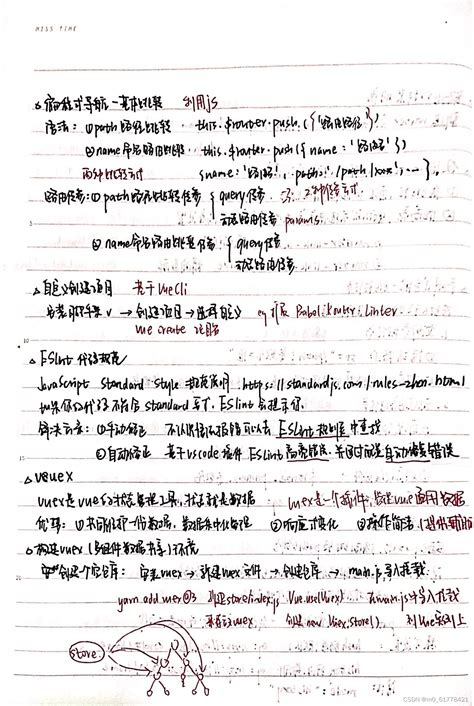 MISS TIME
△ 编程式导航-基本跳转 利用js
语法: ①path路径跳转 this.$router.push({'路由路径'})
②name命名路由跳转 this.$router.push({name:'路由名'})
两种 方式 {name:'路由名', path:'/path/xxx', …},
路由传参: ①path路径跳转传参 { query传参 两种传参方式
动态路由传参 params
②name命名路由跳转传参 { query传参
动态路由传参
△ 自定义创建项目 基于VueCli
安装脚手架 → 创建项目 → 选择自定义 Babel/Router/Linter
vue create 项目名
△ ESlint 代码规范
JavaScript Standard Style 规范说明 https://standardjs.com/rules-zhcn.html
如果你的代码不符合standard要求, ESlint会提示你.
解决方案: ①手动修正 ESlint规则表中查找
②自动修正 基于vscode插件ESlint高亮错误, 并通过配置自动修复错误
△ vuex
vuex是vue的状态管理工具, 状态就是数据 vuex是一个插件, 管理vue通用的数据
优势: ①共同维护一份数据, 数据集中化管理 ②响应式变化 ③操作简洁(提供辅助
△ 构建vuex(多组件数据共享)环境
创建一个空仓库: 安装vuex → 新建vuex文件 → 创建仓库 → main.js导入挂载
yarn add vuex@3 新建store/index.js Vue.use(Vuex) 在main.js中导入挂载
创建new Vuex.Store() 到Vue实例上
store
CSDN @m0_61778421